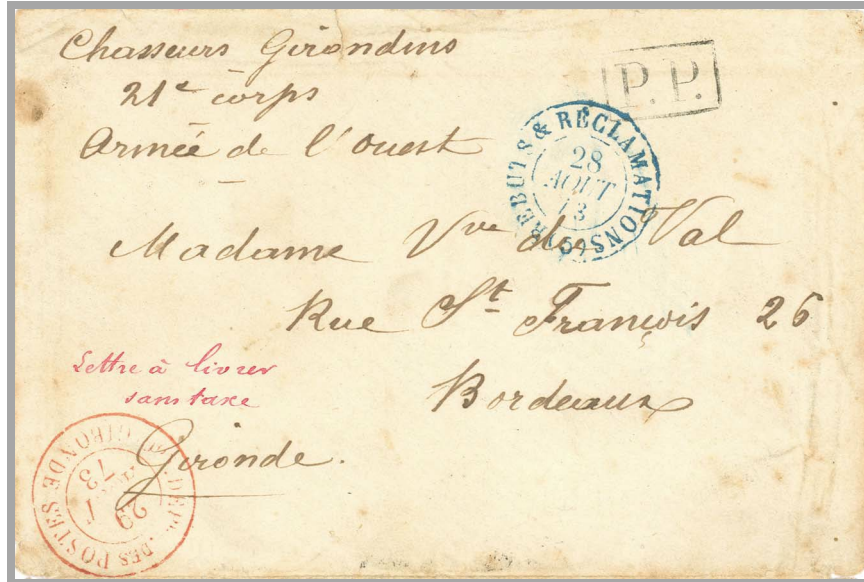 Chasseurs Girondins
21e corps
Armée de l'Ouest
P.P.
REBUTS & RÉCLAMATIONS
28
AOUT
73
(5)
Madame Vve du Val
Rue St François 26
Lettre à livrer
sans taxe
Bordeaux
Gironde.
DES POSTES GIRONDE
29
73